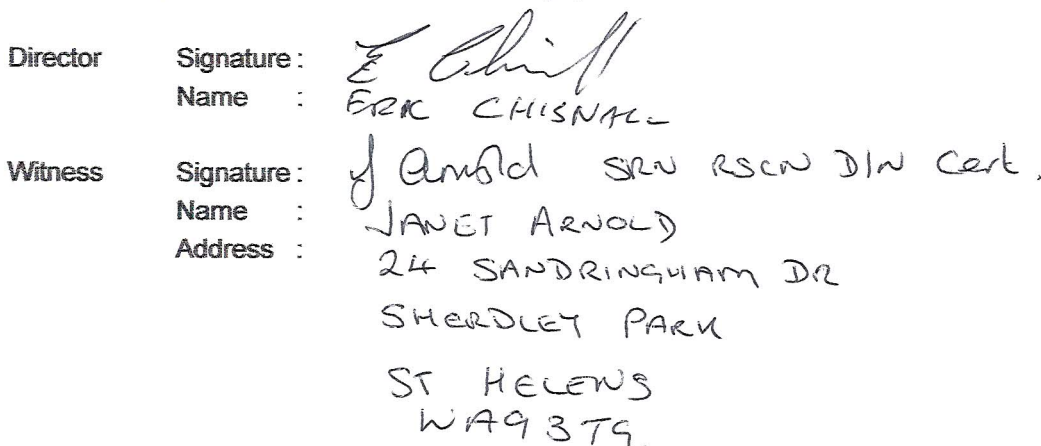 Director Signature : E Chisnall
Name : ERIC CHISNALL
Witness Signature : J Arnold SRN RSCN DIN Cert.
Name : JANET ARNOLD
Address : 24 SANDRINGHAM DR
SHERDLEY PARK
ST HELENS
WA9 3TG.